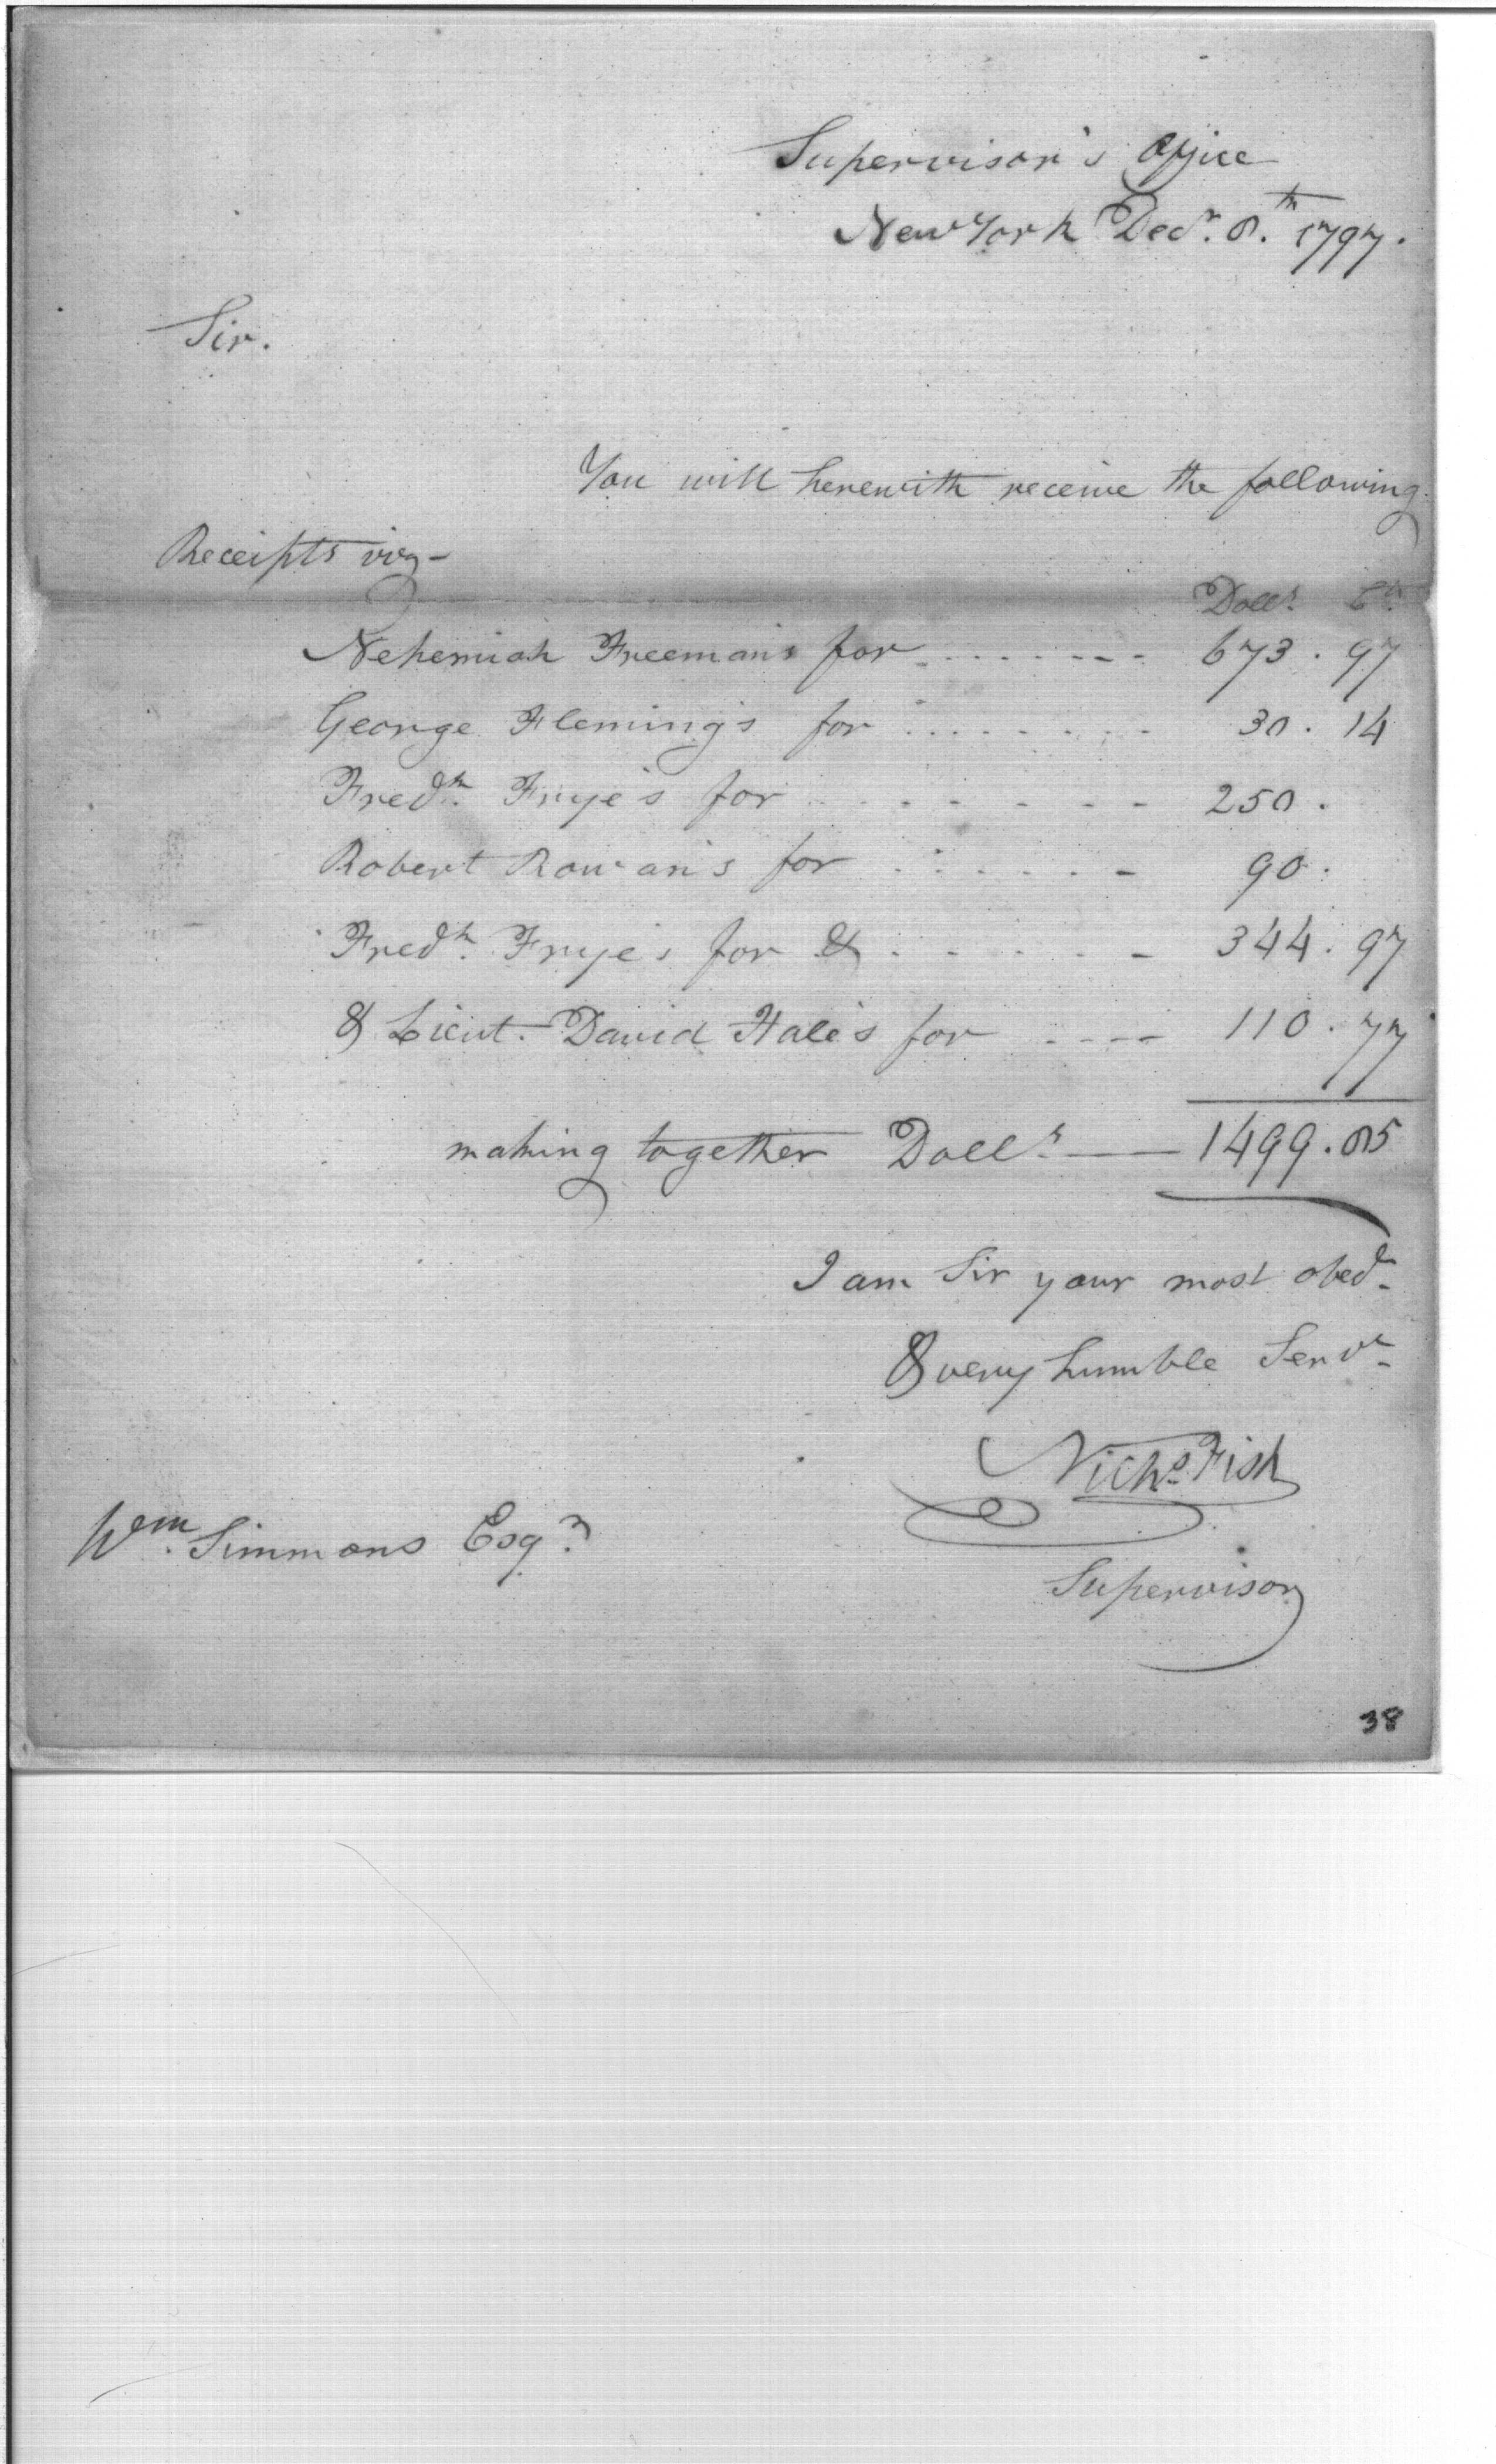 Supervisor's Office
New York Decr. 8.th 1797.
Sir.
You will herewith receive the following
Receipts viz-
Dolls. Cts.
Nehemiah Freeman's for ....... --- 673.97
George Fleming's for ........ 30.14
Fredk. Frye's for ....... 250.
Robert Rowan's for ....... 90.
Fredk. Frye's for & ...... 344.97
& Lieut. David Hale's for ---- 110.77
making together Dolls. — 1499.85
I am Sir your most obedt.
& very humble Servt.
Nichs. Fish
Wm. Simmons Esqr.
Supervisor
38